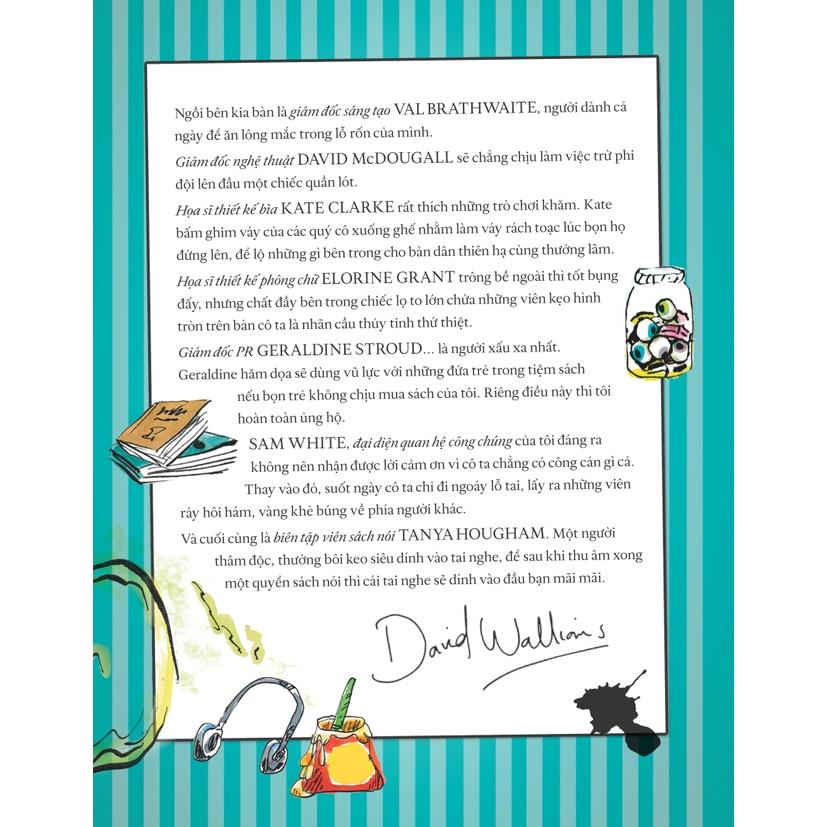 Ngồi bên kia bàn là giám đốc sáng tạo VAL BRATHWAITE, người dành cả
ngày để ăn lông mắc trong lỗ rốn của mình.
Giám đốc nghệ thuật DAVID McDOUGALL sẽ chẳng chịu làm việc trừ phi
đội lên đầu một chiếc quần lót.
Họa sĩ thiết kế bìa KATE CLARKE rất thích những trò chơi khăm. Kate
bấm ghim váy của các quý cô xuống ghế nhằm làm váy rách toạc lúc bọn họ
đứng lên, để lộ những gì bên trong cho bàn dân thiên hạ cùng thưởng lãm.
Họa sĩ thiết kế phông chữ ELORINE GRANT trông bề ngoài thì tốt bụng
đấy, nhưng chất đầy bên trong chiếc lọ to lớn chứa những viên kẹo hình
tròn trên bàn cô ta là nhãn cầu thủy tinh thứ thiệt.
Giám đốc PR GERALDINE STROUD... là người xấu xa nhất.
Geraldine hăm dọa sẽ dùng vũ lực với những đứa trẻ trong tiệm sách
nếu bọn trẻ không chịu mua sách của tôi. Riêng điều này thì tôi
hoàn toàn ủng hộ.
SAM WHITE, đại diện quan hệ công chúng của tôi đáng ra
không nên nhận được lời cảm ơn vì cô ta chẳng có công cán gì cả.
Thay vào đó, suốt ngày cô ta chỉ đi ngoáy lỗ tai, lấy ra những viên
ráy hôi hám, vàng khè búng về phía người khác.
Và cuối cùng là biên tập viên sách nói TANYA HOUGHAM. Một người
thâm độc, thường bôi keo siêu dính vào tai nghe, để sau khi thu âm xong
một quyển sách nói thì cái tai nghe sẽ dính vào đầu bạn mãi mãi.
David Walliams